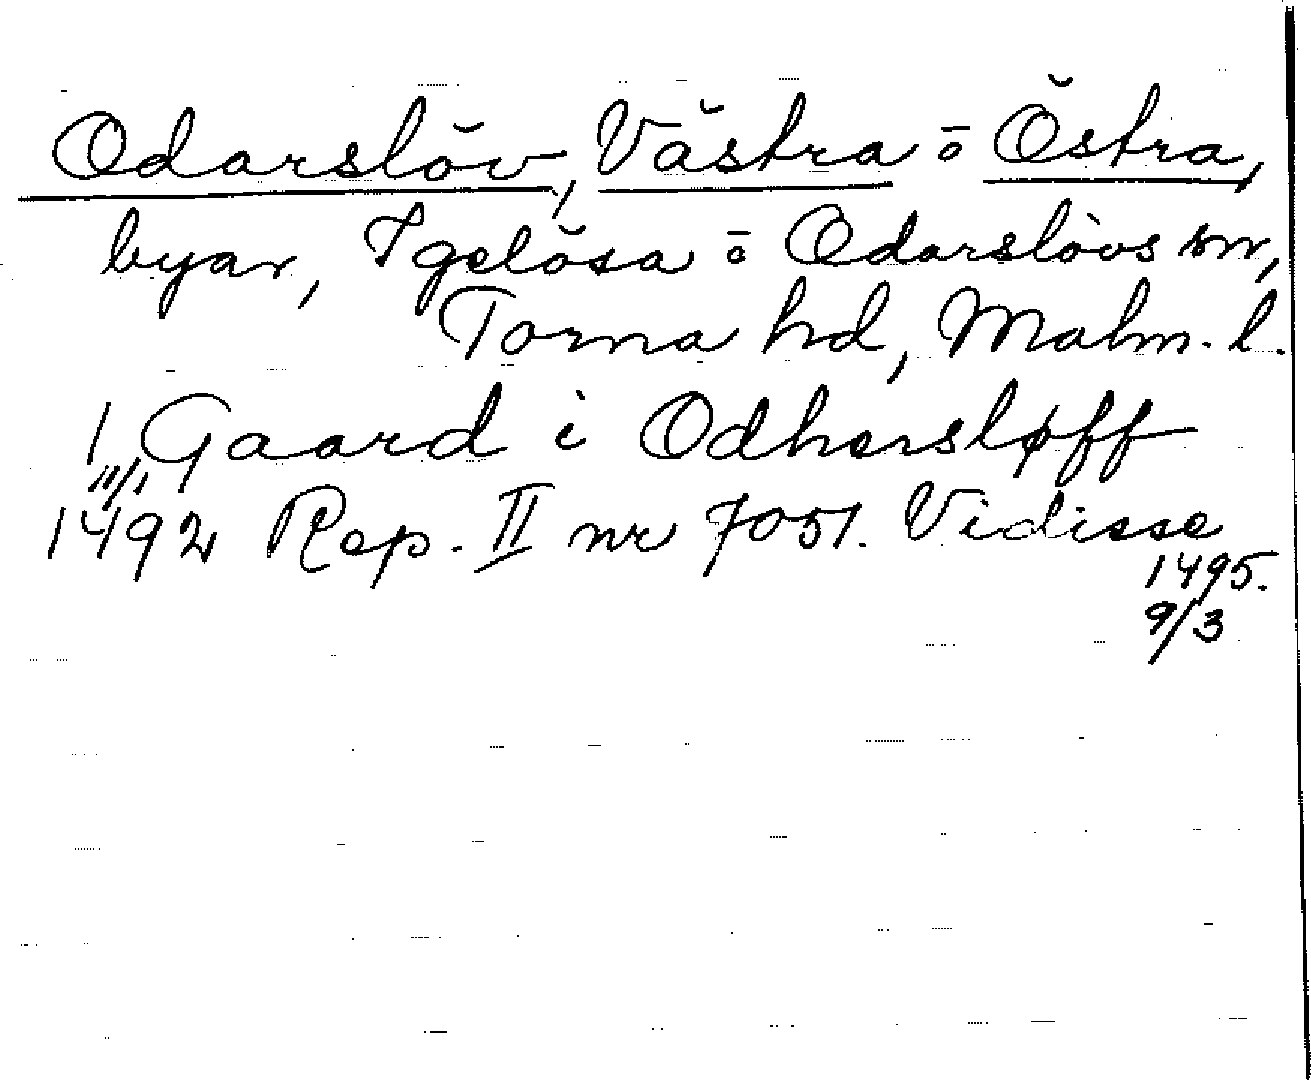 Odarslöv, Västra o Östra,
byar, Igelösa o Odarslövs snr,
Torna hd, Malm. l.
1 Gaard i Odhersløff
11/1
1492 Rep. II nr 7051. Vidisse
1495.
9/3